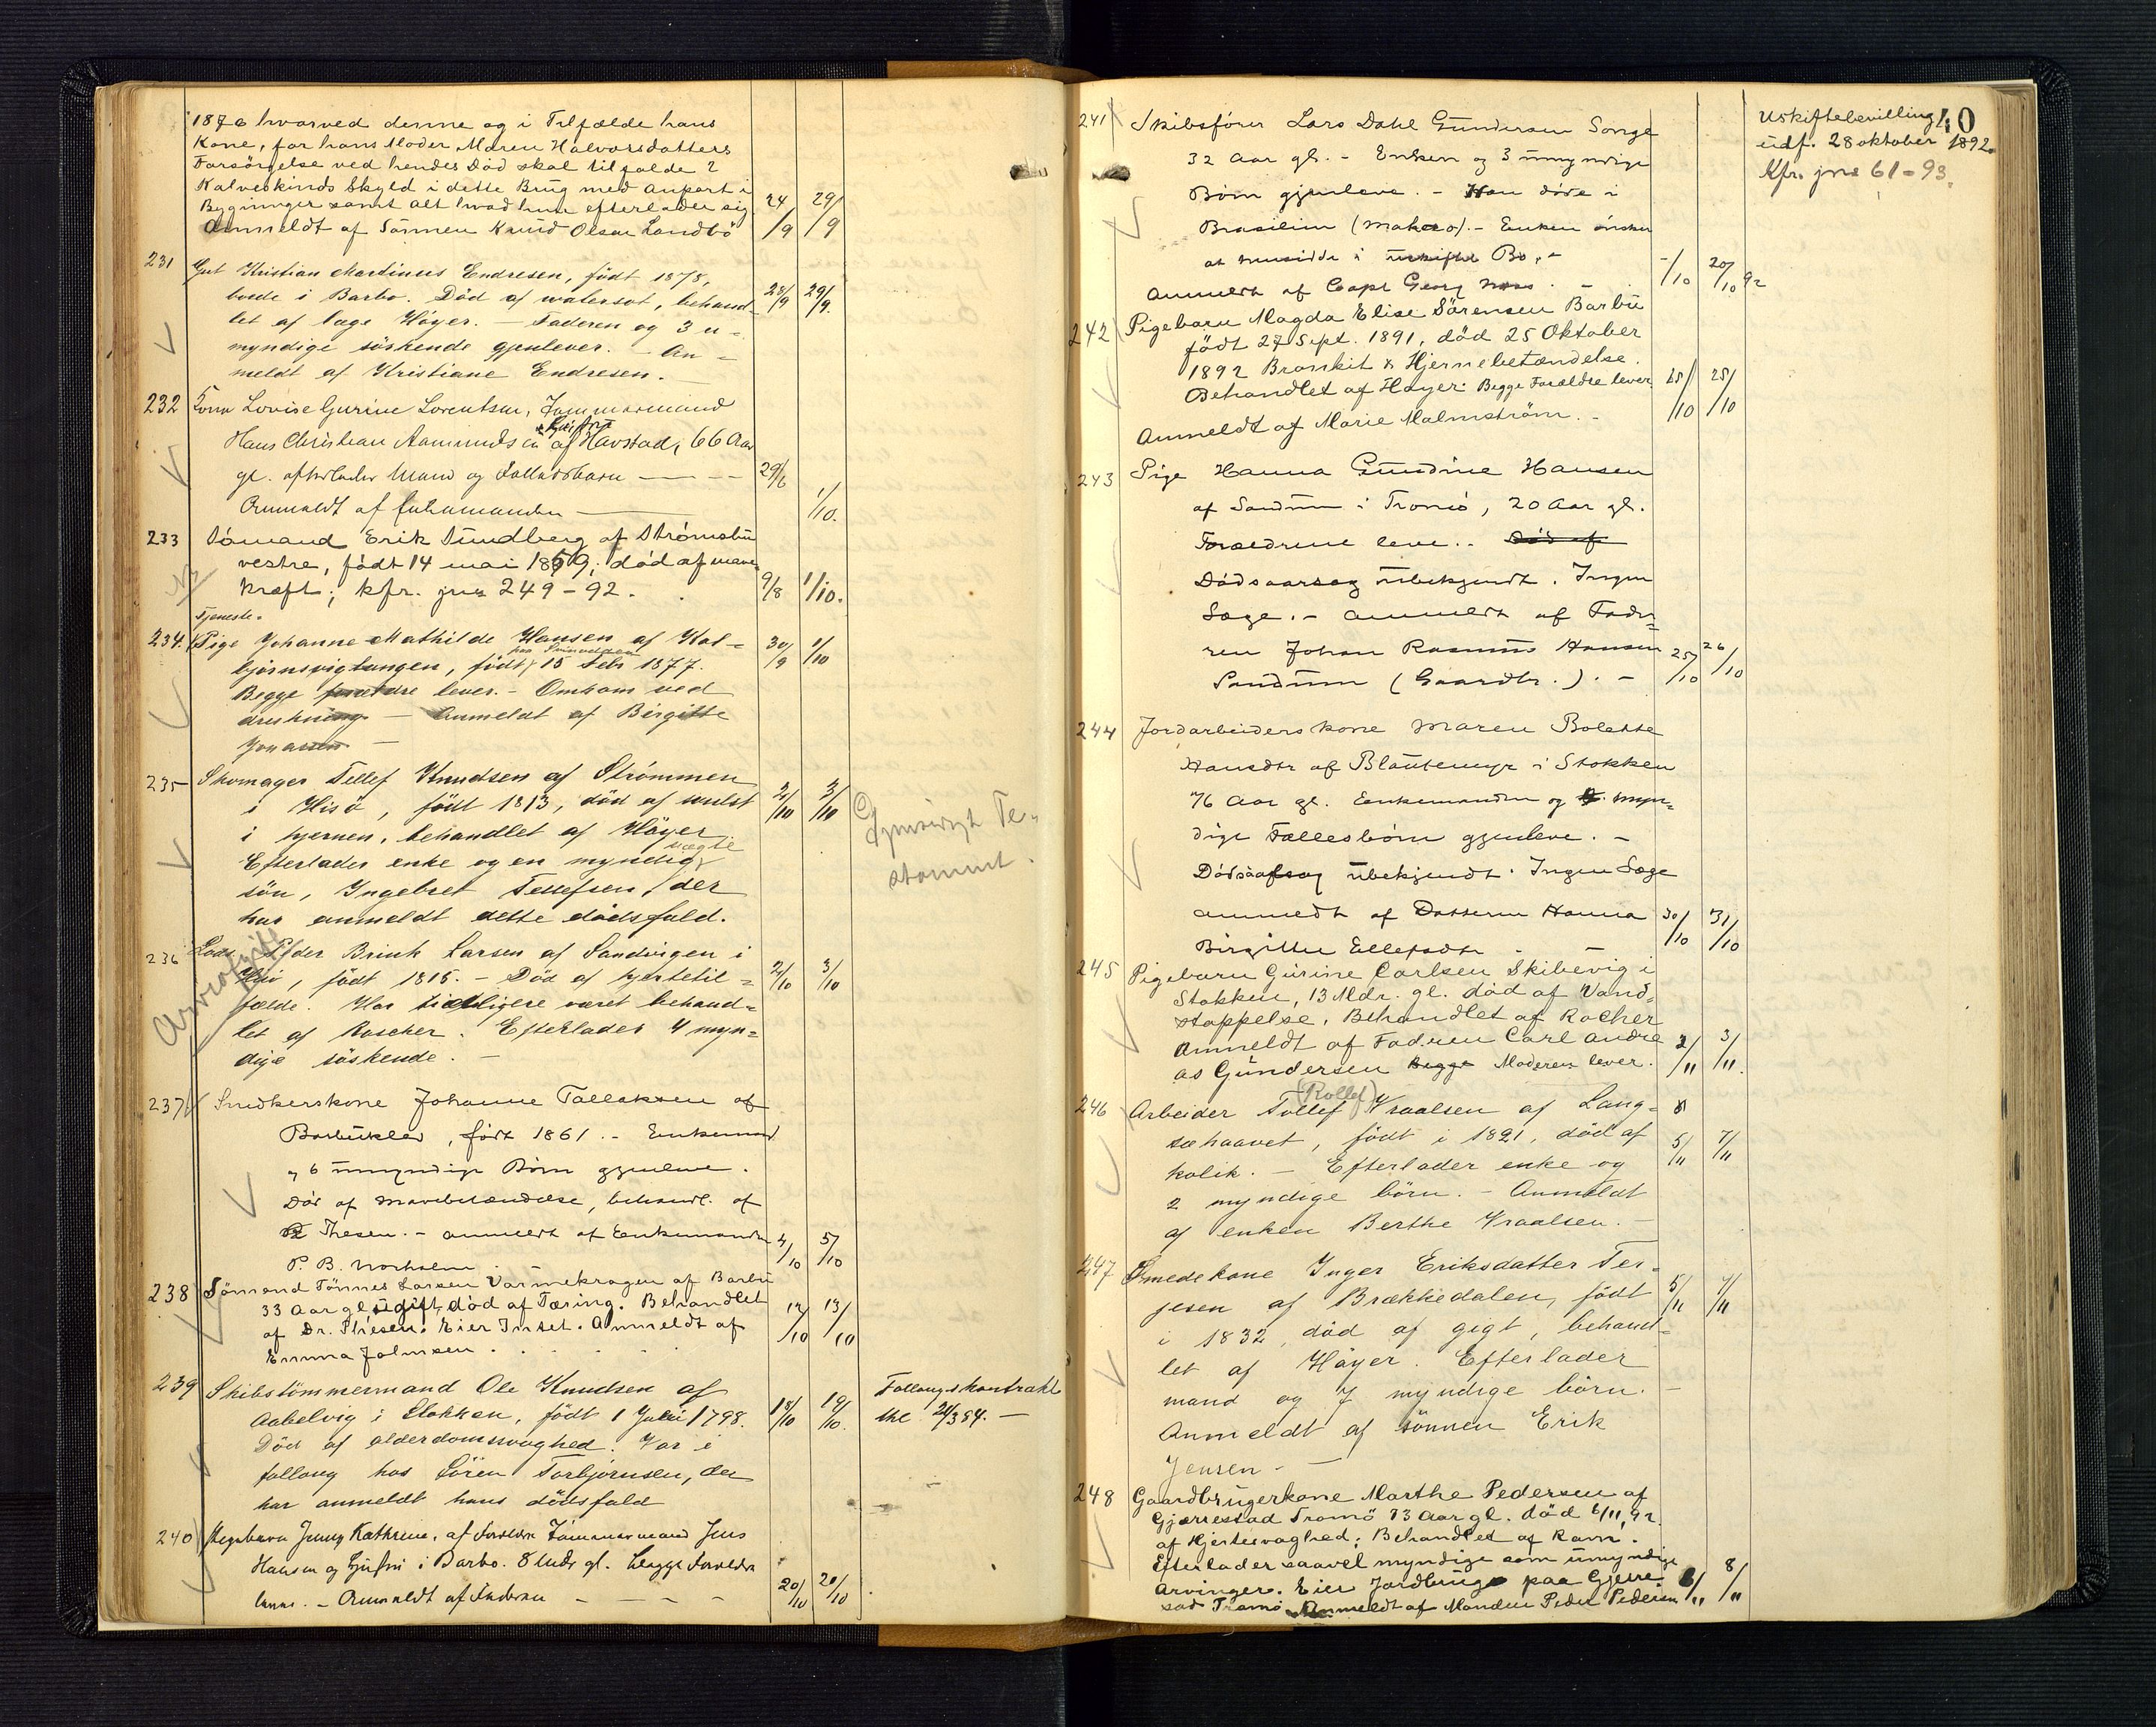 1876 hvorved denne og i Tilfælde hans
Kone, for hans Moder Maren Halvorsdatters
Forsörgelse ved hendes Död skal tilfalde 2
Kalveskinds Skyld i dette Brug med Anpart i
Bygninger samt alt hvad hun efterlader sig 24/9 29/9
Anmeldt af Sönnen Knud Olsen Landbö
231 Gut Kristian Martinus Endresen, født 1878,
boede i Barbo. Död af watersot, behand- 28/9 29/9.
let af læge Höyer. — Faderen og 3 u-
myndige söskende gjenlever. — An-
meldt af Kristiane Endresen. —
232 Kone Lovise Gurine Lorentsen, Tømmermand
Hans Christian Aamundsen af Havstad, 66 Aar
gl. efterlader Mand og Fællesbarn — 29/6
Anmeldt af Enkemanden — 1/10.
233 Sömand Erik Sundberg af Strömsbu
vestre, født 14 mai 1859; död af mave-
kræft; kfr. jnr 249-92. 9/8 1/10.
Tjeneste-
234. Pige Johanne Mathilde Hansen af Kol-
björnsvigtangen, född 15 Febr 1877. 30/9 1/10
Begge forældre lever. — Omkom ved
drukning — Anmeldt af Birgitte
Johansen —
235 Skomager Tellef Knudsen af Strömmen
i Hisö, född 1813, död af svulst 2/10 3/10
i hjernen, behandlet af Höyer.
ægte
Efterlader enke og en myndig
sön, Ingebret Tellefsen, der
har anmeldt dette dödsfald.
Gjensidigt Te-
stament.
236 Lods Peder Brink Larsen af Sandvigen i
Hisö, född 1815. — Död af hjertetil- 2/10 3/10
fælde. Har tidligere været behand-
let af Roscher. Efterlader 4 myn-
dige söskende. —
Arveafgift
237 Snedkerskone Johanne Tallaksen af
Barbuklev, født 1861. — Enkemand
og 6 umyndige Börn gjenleve.
Död af Mavebetændelse, behandl. af
Thesen. — anmeldt af Enkemanden 4/10 5/10
P. B. Norholm
238 Sömand Tönnes Larsen Varmekragen af Barbu
33 Aar gl. ugift, död af Tæring. Behandlet
af Dr. Thesen. Eier Intet. Anmeldt af 12/10 13/10
Emma Johnsen
239 Skibstömmermand Ole Knudsen af
Aabelvig i Stokken, född 1 Juli 1798. 18/10 19/10.
Död af alderdomssvaghed. Var i
follaug hos Sören Torbjörnsen, der
har anmeldt hans dödsfald
Follaugskontrakt
thl 21/3 84. —
240 Pigebarn Jenny Kathrine, af Forældre Tömmermand Jens
Hansen og Hustru i Barbo. 8 Mdr gl. begge Forældre
leve. — Anmeldt af Faderen — 20/10 20/10
40
241 Skibsförer Lars Dahl Gundersen Songe
32 Aar gl. — Enken og 3 umyndige
Börn gjenleve. — Han döde i
Brasilien (Makao). — Enken önsker
at hensidde i uskiftet Bo. —
Anmeldt af Capt Georg — -/10 20/10 92
Uskiftebevilling
udf. 28 oktober 1892.
Kfr. jnr 61-93.
242 Pigebarn Magda Elise Sörensen Barbu
født 27 Sept. 1891, död 25 Oktober
1892 Bronkit & Hjernebetændelse.
Behandlet af Höyer. Begge Forældre lever 25/10 25/10
Anmeldt af Marie Malmström. —
243 Pige Hanna Gundine Hansen
af Sandum i Tromö, 20 Aar gl.
Forældrene leve. — Död af
Dödsaarsag ubekjendt. Ingen
Læge. — Anmeldt af Fade-
ren Johan Rasmus Hansen 25/10 26/10
Sandum (Gaardbr.). —
244 Jordarbeiderskone Maren Bolette
Hansdtr af Blautemyr i Stokken
76 Aar gl. Enkemanden og myn-
dige Fællesbörn gjenleve. —
Dödsaarsag ubekjendt. Ingen Læge
anmeldt af Datteren Hanna 30/10 31/10
Birgitte Ellefsdtr —
245 Pigebarn Gurine Carlsen Skibevig i
Stokken, 13 Mdr. gl. död af Vand-
stoppelse. Behandlet af Rocher
Anmeldt af Faderen Carl Andre
as Gundersen Begge Moderen lever. 2/11 3/11.
(Rollef)
246 Arbeider Tollef Vraalsen af Lang-
sæhaavet, född i 1821, död af 5/11 7/11
kolik. — Efterlader enke og
2 myndige börn. — Anmeldt
af enken Berthe Vraalsen. —
247 Smedekone Inger Eriksdatter Ter-
jesen af Brækkedalen, född 5/11 7/11
i 1832, död af gigt, behand-
let af Höyer. Efterlader
mand og 7 myndige börn. —
Anmeldt af sönnen Erik
Jensen —
248 Gaardbrugerkone Marthe Pedersen af
Gjerrestad Tromö 73 Aar gl. död 6/11 92.
af Hjertesvaghed; Behandlet af Ram.
Efterlader saavel myndige som umyndige
Arvinger. Eier Jordbrug paa Gjerre
stad Tromö. Anmeldt af Manden Peder Pedersen 8/11 8/11